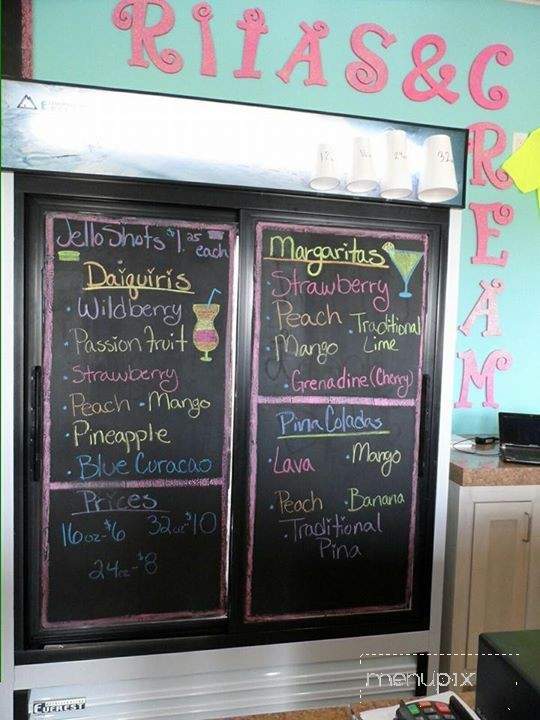 RITAS & CREAM
12 16 24 32
Jello Shots $1.25 each
Daiquiris
• Wildberry
• Passion Fruit
• Strawberry
• Peach • Mango
• Pineapple
• Blue Curacao
Prices
16oz-$6 32oz-$10
24oz-$8
Margaritas
• Strawberry
• Peach
• Traditional Lime
• Mango
• Grenadine (Cherry)
Pina Coladas
• Lava
• Mango
• Peach
• Banana
• Traditional
Pina
EVEREST
menupix